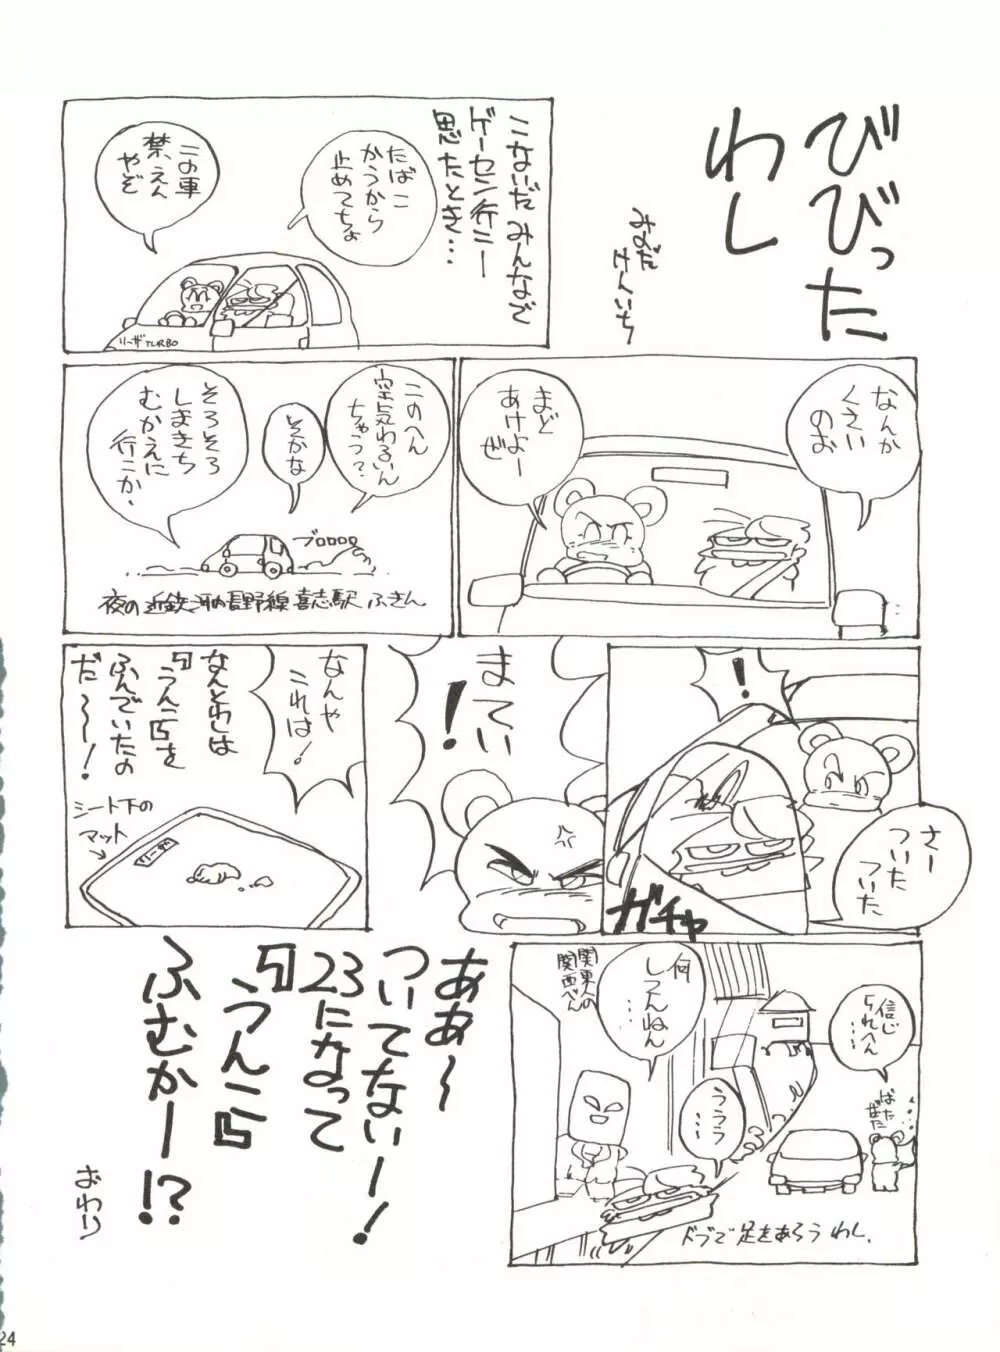 びびった
わし
みのだ
けんいち
こないだみんなで
ゲーセン行こー
思たとき…
たばこ
かうから
止めてちょ
この車
禁えん
やぞ
リーザTURBO
なんか
くさい
のお
まど
あけよー
ぜ
このへん
空気わるいん
ちゃう?
そかな
そろそろ
しまきち
むかえに
行こか.
ブロロロロ
夜の近鉄河内長野線喜志駅ふきん
!
さー
ついた
ついた
ガチャ
まてい!
なんや
これは!
なんとわしは
『うんこ』を
ふんでいたの
だ〜〜!
シート下の
マット
リーザ
信じ
られへん
……
ばた
ばた
何
しつんねん
……
関東人の
関西べん
ううう
……
ドブで足をあらうわし.
ああ〜
ついてないー!
23になって
『うんこ』
ふむかー!?
おわり
24